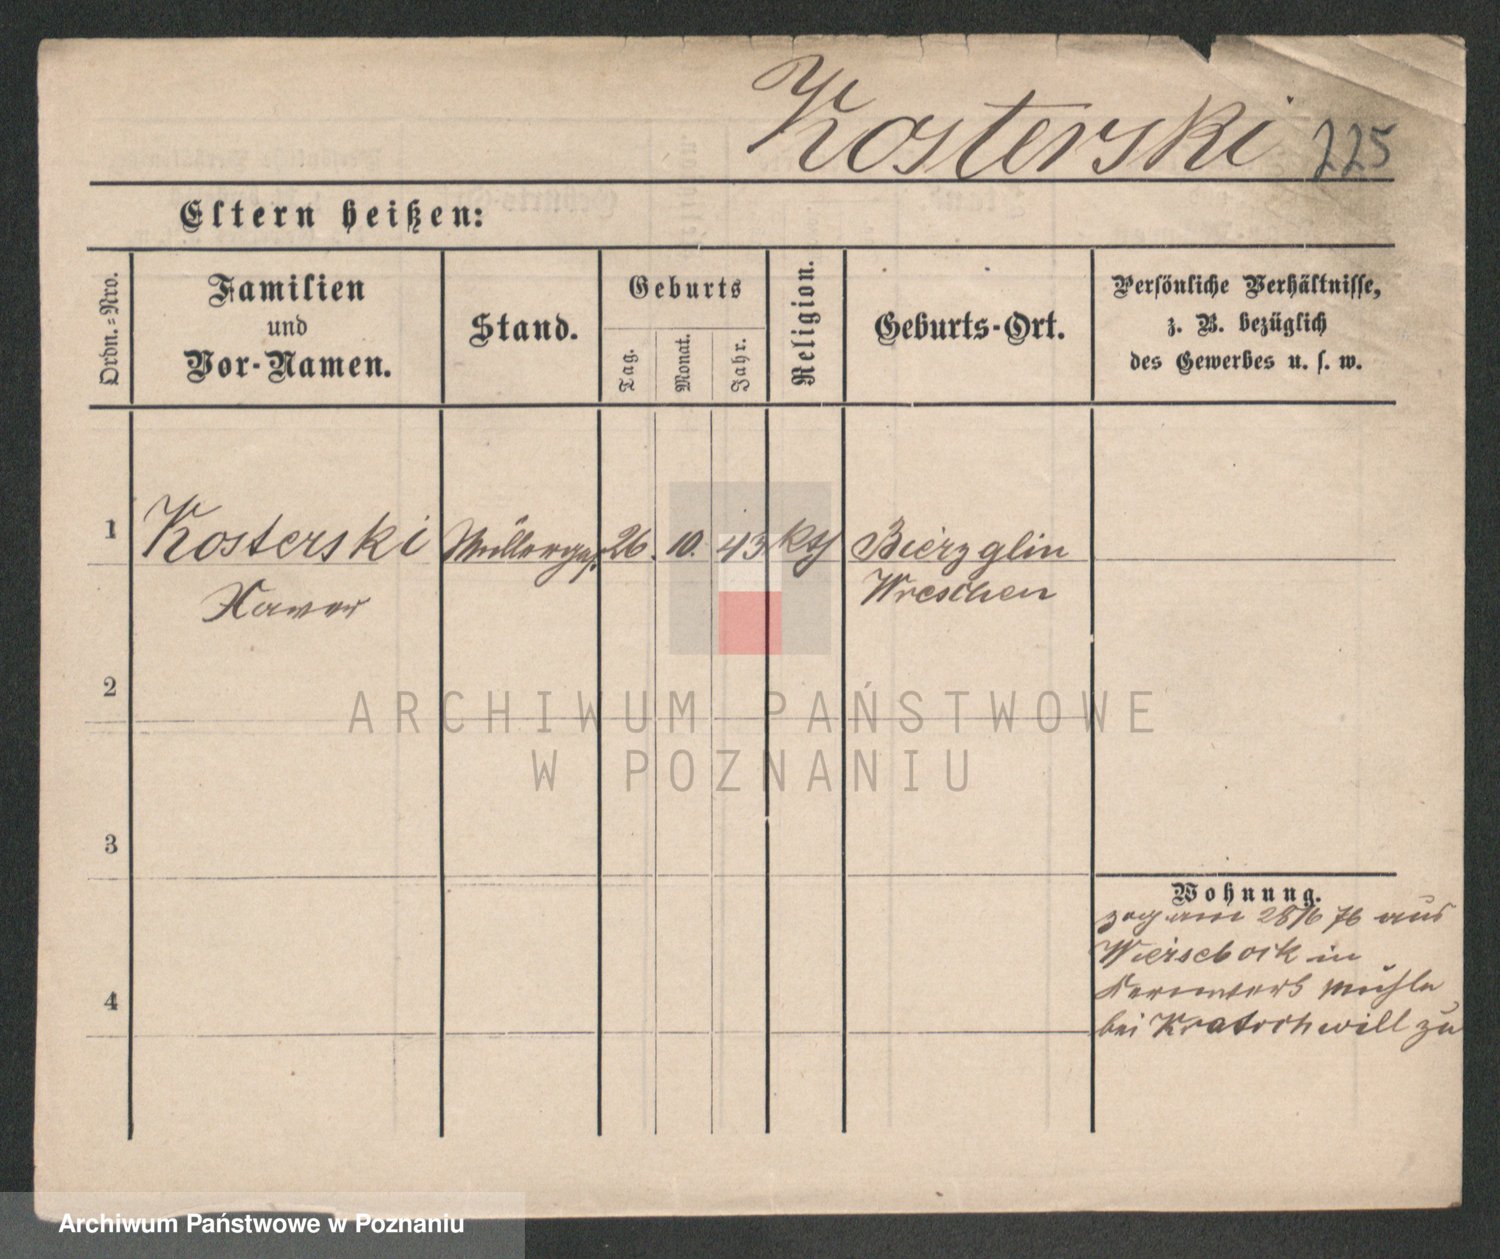 Kosterski 225
Eltern heißen:
Ordn.=Nro.
Familien
und
Vor-Namen.
Stand.
Geburts
Tag.
Monat.
Jahr.
Religion.
Geburts-Ort.
Persönliche Verhältnisse,
z. B. bezüglich
des Gewerbes u. s. w.
1
Kosterski Müllerges 26. 10. 43 kg Bierzglin
Xaver Wreschen
2
3
4
Wohnung.
zog am 28/6 76 aus
in
mühle
bei Kratochwill zu
ARCHIWUM PAŃSTWOWE
W POZNANIU
Archiwum Państwowe w Poznaniu